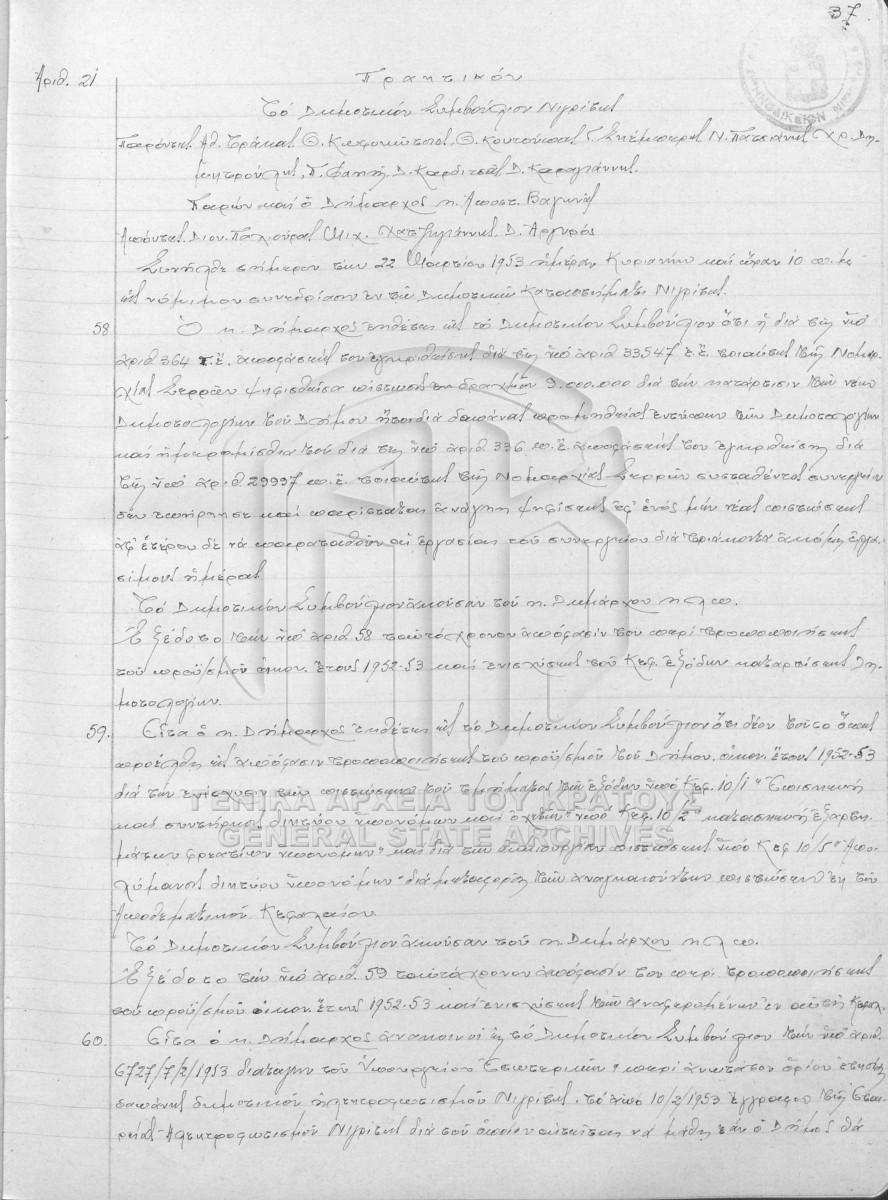 37.
Ἀριθ. 21
Πρακτικόν
Τό Δημοτικόν Συμβούλιον Νιγρίτης
Παρόντες Αθ. Θ. Θ. Κουτούπας Γ. Ν. Πατσιάννης Χρ. Δη-
μητρούλης, Π. Φαπῆς Δ. Καρδιτσᾶς Δ. Καραγιάννης.
Παρών καί ὁ Δήμαρχος κ. Αποστ. Βαγενᾶς
Απόντες Διον. Παλιούρας Μιχ. Χατζηγιάννης Δ. Αργυρός
Συνῆλθε σήμερον την 22 Μαρτίου 1953 ἡμέραν Κυριακήν καί ὥραν 10 π.μ. εἰς
εἰς νόμιμον συνεδρίασιν ἐν τῷ Δημοτικῷ Καταστήματι Νιγρίτης.
58 Ὁ κ. Δήμαρχος ἐκθέτει εἰς τό Δημοτικόν Συμβούλιον ὅτι ἡ διά τῆς ὑπ'
ἀριθ. 364 ἀποφάσεώς του ἐγκριθείσης διά τῆς ὑπ' ἀριθ. 33547 ἐ.ἔ. τοιαύτης τῆς Νομαρ-
χίας Σερρῶν ψηφισθεῖσα πίστωσις ἐκ δραχμῶν 9.000.000 διά τήν κατάρτισιν τῶν νέων
Δημοτολογίων τοῦ Δήμου ἤτοι διά δαπάνας προμηθείας ἐντύπων τῶν Δημοτολογίων
καί ἡμερομίσθια τοῦ διά τῆς ὑπ' ἀριθ. 336 π.ἔ. ἀποφάσεώς του ἐγκριθείσης διά
τῆς ὑπ' ἀριθ. 29997 π.ἔ. τοιαύτης τῆς Νομαρχίας Σερρῶν συσταθέντος συνεργείου
δέν ἐπήρκησε καί παρίσταται ἀνάγκη ψηφίσεως ἀφ' ἑνός μέν νέας πιστώσεως
ἀφ' ἑτέρου δέ νά παραταθοῦν αἱ ἐργασίαι τοῦ συνεργείου διά τριάκοντα ἀκόμη ἐργα-
σίμους ἡμέρας
Τό Δημοτικόν Συμβούλιον ἀκοῦσαν τοῦ κ. Δημάρχου κ λ π.
Ἐξέδοτο τήν ὑπ' ἀριθ. 58 ταυτόχρονον ἀπόφασίν του περί τροποποιήσεως
τοῦ προϋ/σμοῦ οἰκον. ἔτους 1952-53 καί ἐνισχύσεως τοῦ Κεφ. ἐξόδων καταρτίσεως Δη-
μοτολογίων.
59. Εἶτα ὁ κ. Δήμαρχος ἐκθέτει εἰς τό Δημοτικόν Συμβούλιον ὅτι δέον τοῦτο ὅπως
προέλθῃ εἰς ἀπόφασιν τροποποιήσεως τοῦ προϋ/σμοῦ τοῦ Δήμου, οἰκον. ἔτους 1952-53
διά την ἐνίσχυσιν τῶν πιστώσεων τοῦ τμήματος τῶν ἐξόδων ὑπό Κεφ. 10/1 "Ἐπισκευή
καί συντήρησις δικτύου ὑπονόμων καί ὀχετῶν" ὑπό Κεφ. 10/2 "κατασκευή ἐξαρτη-
μάτων φρεατίων ὑπονόμων" καί διά την δημιουργίαν πιστώσεως ὑπό Κεφ 10/5 "Απο-
λύμανσις δικτύου ὑπονόμων" διά μεταφορᾶς τῶν ἀναγκαιουσῶν πιστώσεων ἐκ τοῦ
Ἀποθεματικοῦ Κεφαλαίου.
Τό Δημοτικόν Συμβούλιον ἀκοῦσαν τοῦ κ. Δημάρχου κ λ π.
Ἐξέδοτο τήν ὑπ' ἀριθ. 59 ταυτόχρονον ἀπόφασίν του περί τροποποιήσεως
τοῦ προϋ/σμοῦ οἰκον. ἔτους 1952-53 καί ἐνισχύσεως τῶν ἀναφερομένων ἐν αὐτῇ Κεφαλ.
60. Εἶτα ὁ κ. Δήμαρχος ἀνακοινοῖ εἰς τό Δημοτικόν Συμβούλιον τήν ὑπ' ἀριθ.
6727/7/2/1953 διαταγην τοῦ Ὑπουργείου Ἐσωτερικῶν "περί ἀνωτάτου ὁρίου ἐτησίας
δαπάνης δημοτικοῦ ἠλεκτροφωτισμοῦ Νιγρίτης, τό ἀπό 10/2/1953 ἔγγραφον τῆς Ἑται-
ρείας Ἠλεκτροφωτισμοῦ Νιγρίτης διά τοῦ ὁποίου αἰτεῖται νά μάθῃ ἐάν ὁ Δῆμος θά
ΓΕΝΙΚΑ ΑΡΧΕΙΑ ΤΟΥ ΚΡΑΤΟΥΣ
GENERAL STATE ARCHIVES